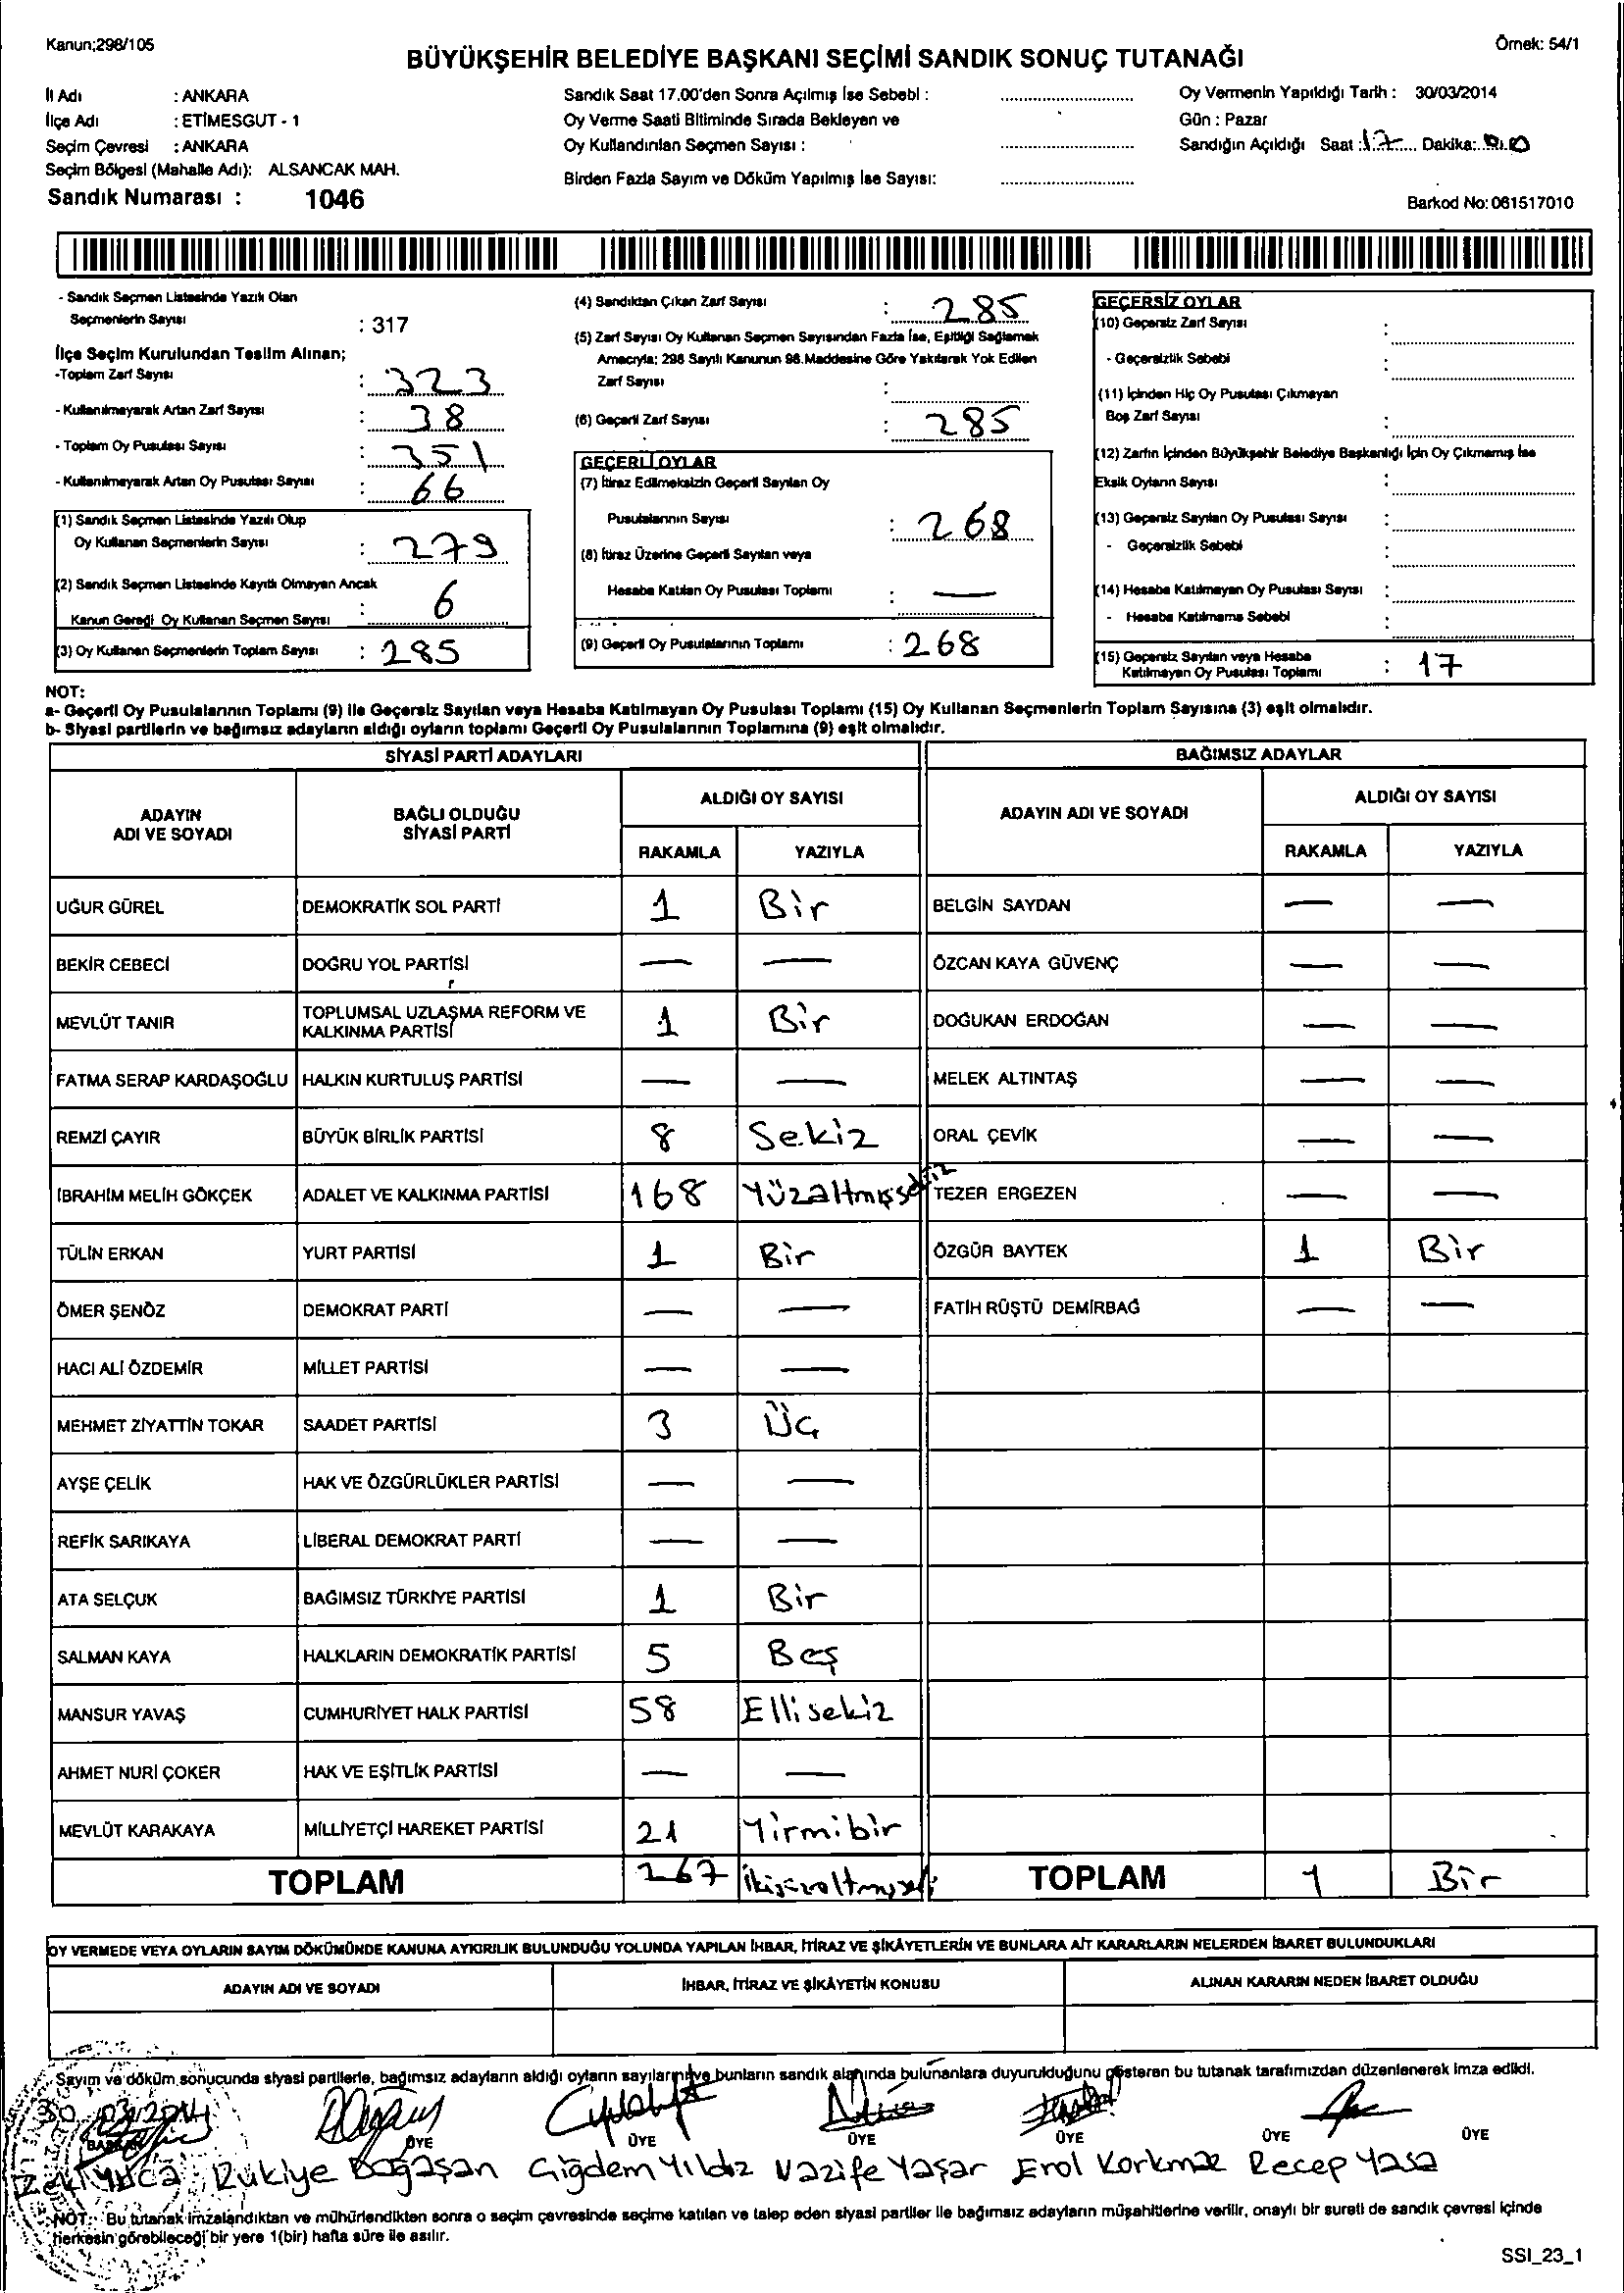 Kanun;298/105
Örnek: 54/1
BÜYÜKŞEHİR BELEDİYE BAŞKANI SEÇİMİ SANDIK SONUÇ TUTANAĞI
İl Adı : ANKARA
İlçe Adı : ETİMESGUT - 1
Seçim Çevresi : ANKARA
Seçim Bölgesi (Mahalle Adı): ALSANCAK MAH.
Sandık Numarası : 1046
Sandık Saat 17.00'den Sonra Açılmış İse Sebebi :
Oy Verme Saati Bitiminde Sırada Bekleyen ve
Oy Kullandırılan Seçmen Sayısı :
Birden Fazla Sayım ve Döküm Yapılmış İse Sayısı:
Oy Vermenin Yapıldığı Tarih : 30/03/2014
Gün : Pazar
Sandığın Açıldığı Saat : 17 Dakika: 00
Barkod No: 061517010
- Sandık Seçmen Listesinde Yazılı Olan
Seçmenlerin Sayısı : 317
İlçe Seçim Kurulundan Teslim Alınan;
-Toplam Zarf Sayısı : 323
- Kullanılmayarak Artan Zarf Sayısı : 38
- Toplam Oy Pusulası Sayısı : 351
- Kullanılmayarak Artan Oy Pusulası Sayısı : 66
(1) Sandık Seçmen Listesinde Yazılı Olup
Oy Kullanan Seçmenlerin Sayısı : 279
(2) Sandık Seçmen Listesinde Kayıtlı Olmayan Ancak
Kanun Gereği Oy Kullanan Seçmen Sayısı : 6
(3) Oy Kullanan Seçmenlerin Toplam Sayısı : 285
(4) Sandıktan Çıkan Zarf Sayısı : 285
(5) Zarf Sayısı Oy Kullanan Seçmen Sayısından Fazla İse, Eşitliği Sağlamak
Amacıyla; 298 Sayılı Kanunun 98.Maddesine Göre Yakılarak Yok Edilen
Zarf Sayısı :
(6) Geçerli Zarf Sayısı : 285
GEÇERLİ OYLAR
(7) İtiraz Edilmeksizin Geçerli Sayılan Oy
Pusulalarının Sayısı : 268
(8) İtiraz Üzerine Geçerli Sayılan veya
Hesaba Katılan Oy Pusulası Toplamı : —
(9) Geçerli Oy Pusulalarının Toplamı : 268
GEÇERSİZ OYLAR
(10) Geçersiz Zarf Sayısı :
- Geçersizlik Sebebi :
(11) İçinden Hiç Oy Pusulası Çıkmayan
Boş Zarf Sayısı :
(12) Zarfın İçinden Büyükşehir Belediye Başkanlığı İçin Oy Çıkmamış İse
Eksik Oyların Sayısı :
(13) Geçersiz Sayılan Oy Pusulası Sayısı :
- Geçersizlik Sebebi :
(14) Hesaba Katılmayan Oy Pusulası Sayısı :
- Hesaba Katılmama Sebebi :
(15) Geçersiz Sayılan veya Hesaba
Katılmayan Oy Pusulası Toplamı : 17
NOT:
a- Geçerli Oy Pusulalarının Toplamı (9) ile Geçersiz Sayılan veya Hesaba Katılmayan Oy Pusulası Toplamı (15) Oy Kullanan Seçmenlerin Toplam Sayısına (3) eşit olmalıdır.
b- Siyasi partilerin ve bağımsız adayların aldığı oyların toplamı Geçerli Oy Pusulalarının Toplamına (9) eşit olmalıdır.
SİYASİ PARTİ ADAYLARI
BAĞIMSIZ ADAYLAR
ADAYIN ADI VE SOYADI
BAĞLI OLDUĞU SİYASİ PARTİ
ALDIĞI OY SAYISI
RAKAMLA YAZIYLA
ADAYIN ADI VE SOYADI
ALDIĞI OY SAYISI
RAKAMLA YAZIYLA
UĞUR GÜREL DEMOKRATİK SOL PARTİ 1 Bir BELGİN SAYDAN — —
BEKİR CEBECİ DOĞRU YOL PARTİSİ — — ÖZCAN KAYA GÜVENÇ — —
MEVLÜT TANIR TOPLUMSAL UZLAŞMA REFORM VE KALKINMA PARTİSİ 1 Bir DOĞUKAN ERDOĞAN — —
FATMA SERAP KARDAŞOĞLU HALKIN KURTULUŞ PARTİSİ — — MELEK ALTINTAŞ — —
REMZİ ÇAYIR BÜYÜK BİRLİK PARTİSİ 8 Sekiz ORAL ÇEVİK — —
İBRAHİM MELİH GÖKÇEK ADALET VE KALKINMA PARTİSİ 168 Yüzaltmışsekiz TEZER ERGEZEN — —
TÜLİN ERKAN YURT PARTİSİ 1 Bir ÖZGÜR BAYTEK 1 Bir
ÖMER ŞENÖZ DEMOKRAT PARTİ — — FATİH RÜŞTÜ DEMİRBAĞ — —
HACI ALİ ÖZDEMİR MİLLET PARTİSİ — —
MEHMET ZİYATTİN TOKAR SAADET PARTİSİ 3 Üç
AYŞE ÇELİK HAK VE ÖZGÜRLÜKLER PARTİSİ — —
REFİK SARIKAYA LİBERAL DEMOKRAT PARTİ — —
ATA SELÇUK BAĞIMSIZ TÜRKİYE PARTİSİ 1 Bir
SALMAN KAYA HALKLARIN DEMOKRATİK PARTİSİ 5 Beş
MANSUR YAVAŞ CUMHURİYET HALK PARTİSİ 58 Ellisekiz
AHMET NURİ ÇOKER HAK VE EŞİTLİK PARTİSİ — —
MEVLÜT KARAKAYA MİLLİYETÇİ HAREKET PARTİSİ 21 Yirmibir
TOPLAM 267 TOPLAM 1 Bir
OY VERMEDE VEYA OYLARIN SAYIM DÖKÜMÜNDE KANUNA AYKIRILIK BULUNDUĞU YOLUNDA YAPILAN İHBAR, İTİRAZ VE ŞİKÂYETLERİN VE BUNLARA AİT KARARLARIN NELERDEN İBARET BULUNDUKLARI
ADAYIN ADI VE SOYADI İHBAR, İTİRAZ VE ŞİKÂYETİN KONUSU ALINAN KARARIN NEDEN İBARET OLDUĞU
Sayım ve döküm sonucunda siyasi partilerle, bağımsız adayların aldığı oyların sayılarını ve bunların sandık alanında bulunanlara duyurulduğunu gösteren bu tutanak tarafımızdan düzenlenerek imza edildi.
30.03.2014
BAŞKAN ÜYE ÜYE ÜYE ÜYE ÜYE ÜYE
Zeki Rukiye Doğaşan Çiğdem Yıldız Vazife Yaşar Erol Korkmaz Recep Yasa
NOT: Bu tutanak imzalandıktan ve mühürlendikten sonra o seçim çevresinde seçime katılan ve talep eden siyasi partiler ile bağımsız adayların müşahitlerine verilir, onaylı bir sureti de sandık çevresi içinde
herkesin görebileceği bir yere 1(bir) hafta süre ile asılır.
SSI_23_1